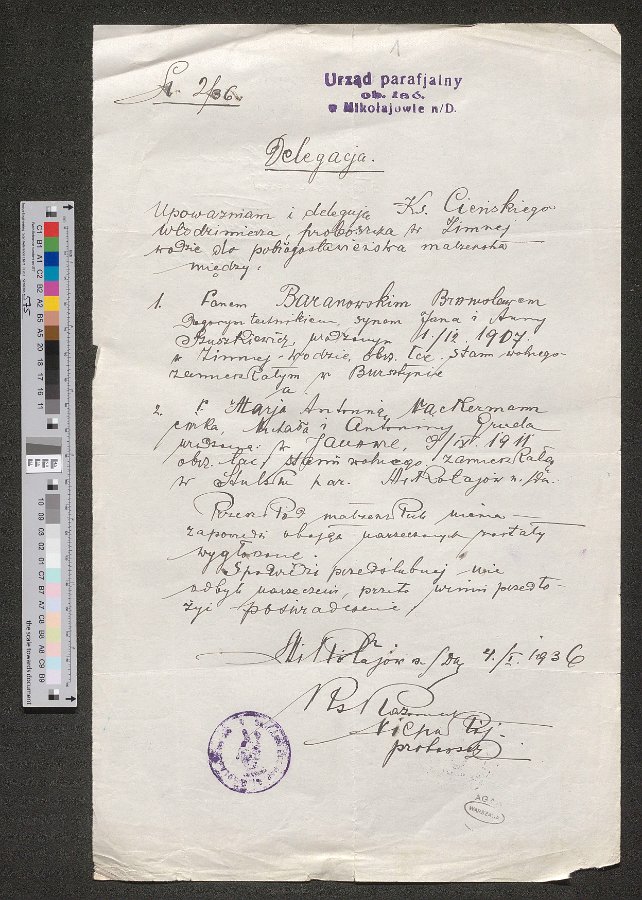 L. 2/36.
Urząd parafjalny
ob. łać.
w Mikołajowie n/D.
Delegacja.
Upoważniam i deleguję Ks. Cieńskiego
Włodzimierza, proboszcza w Zimnej
wodzie do pobłogosławieństwa małżeństwa
między:
1. Panem Baranowskim Bronisławem
technikiem, synem Jana i Anny
urodzonym 1/12. 1907.
w Zimnej-Wodzie, obrz. łać. stanu wolnego
zamieszkałym w Bursztynie
a
2. P. Marją Antoniną Wackermann
córką Michała i Antoniny Gruda
w Janowie, 1911
obrz. łać., stanu wolnego, zamieszkałą
w par. Mikołajów n/Dn.
Przeszkód małżeńskich niema
zapowiedzi obojga narzeczonych zostały
wygłoszone.
Spowiedzi przedślubnej nie
odbyli narzeczeni, przeto winni przedło-
żyć poświadczenie
Mikołajów n/Dn. 4./I. 1936
Ks
proboszcz
AGAD
WARSZAWA